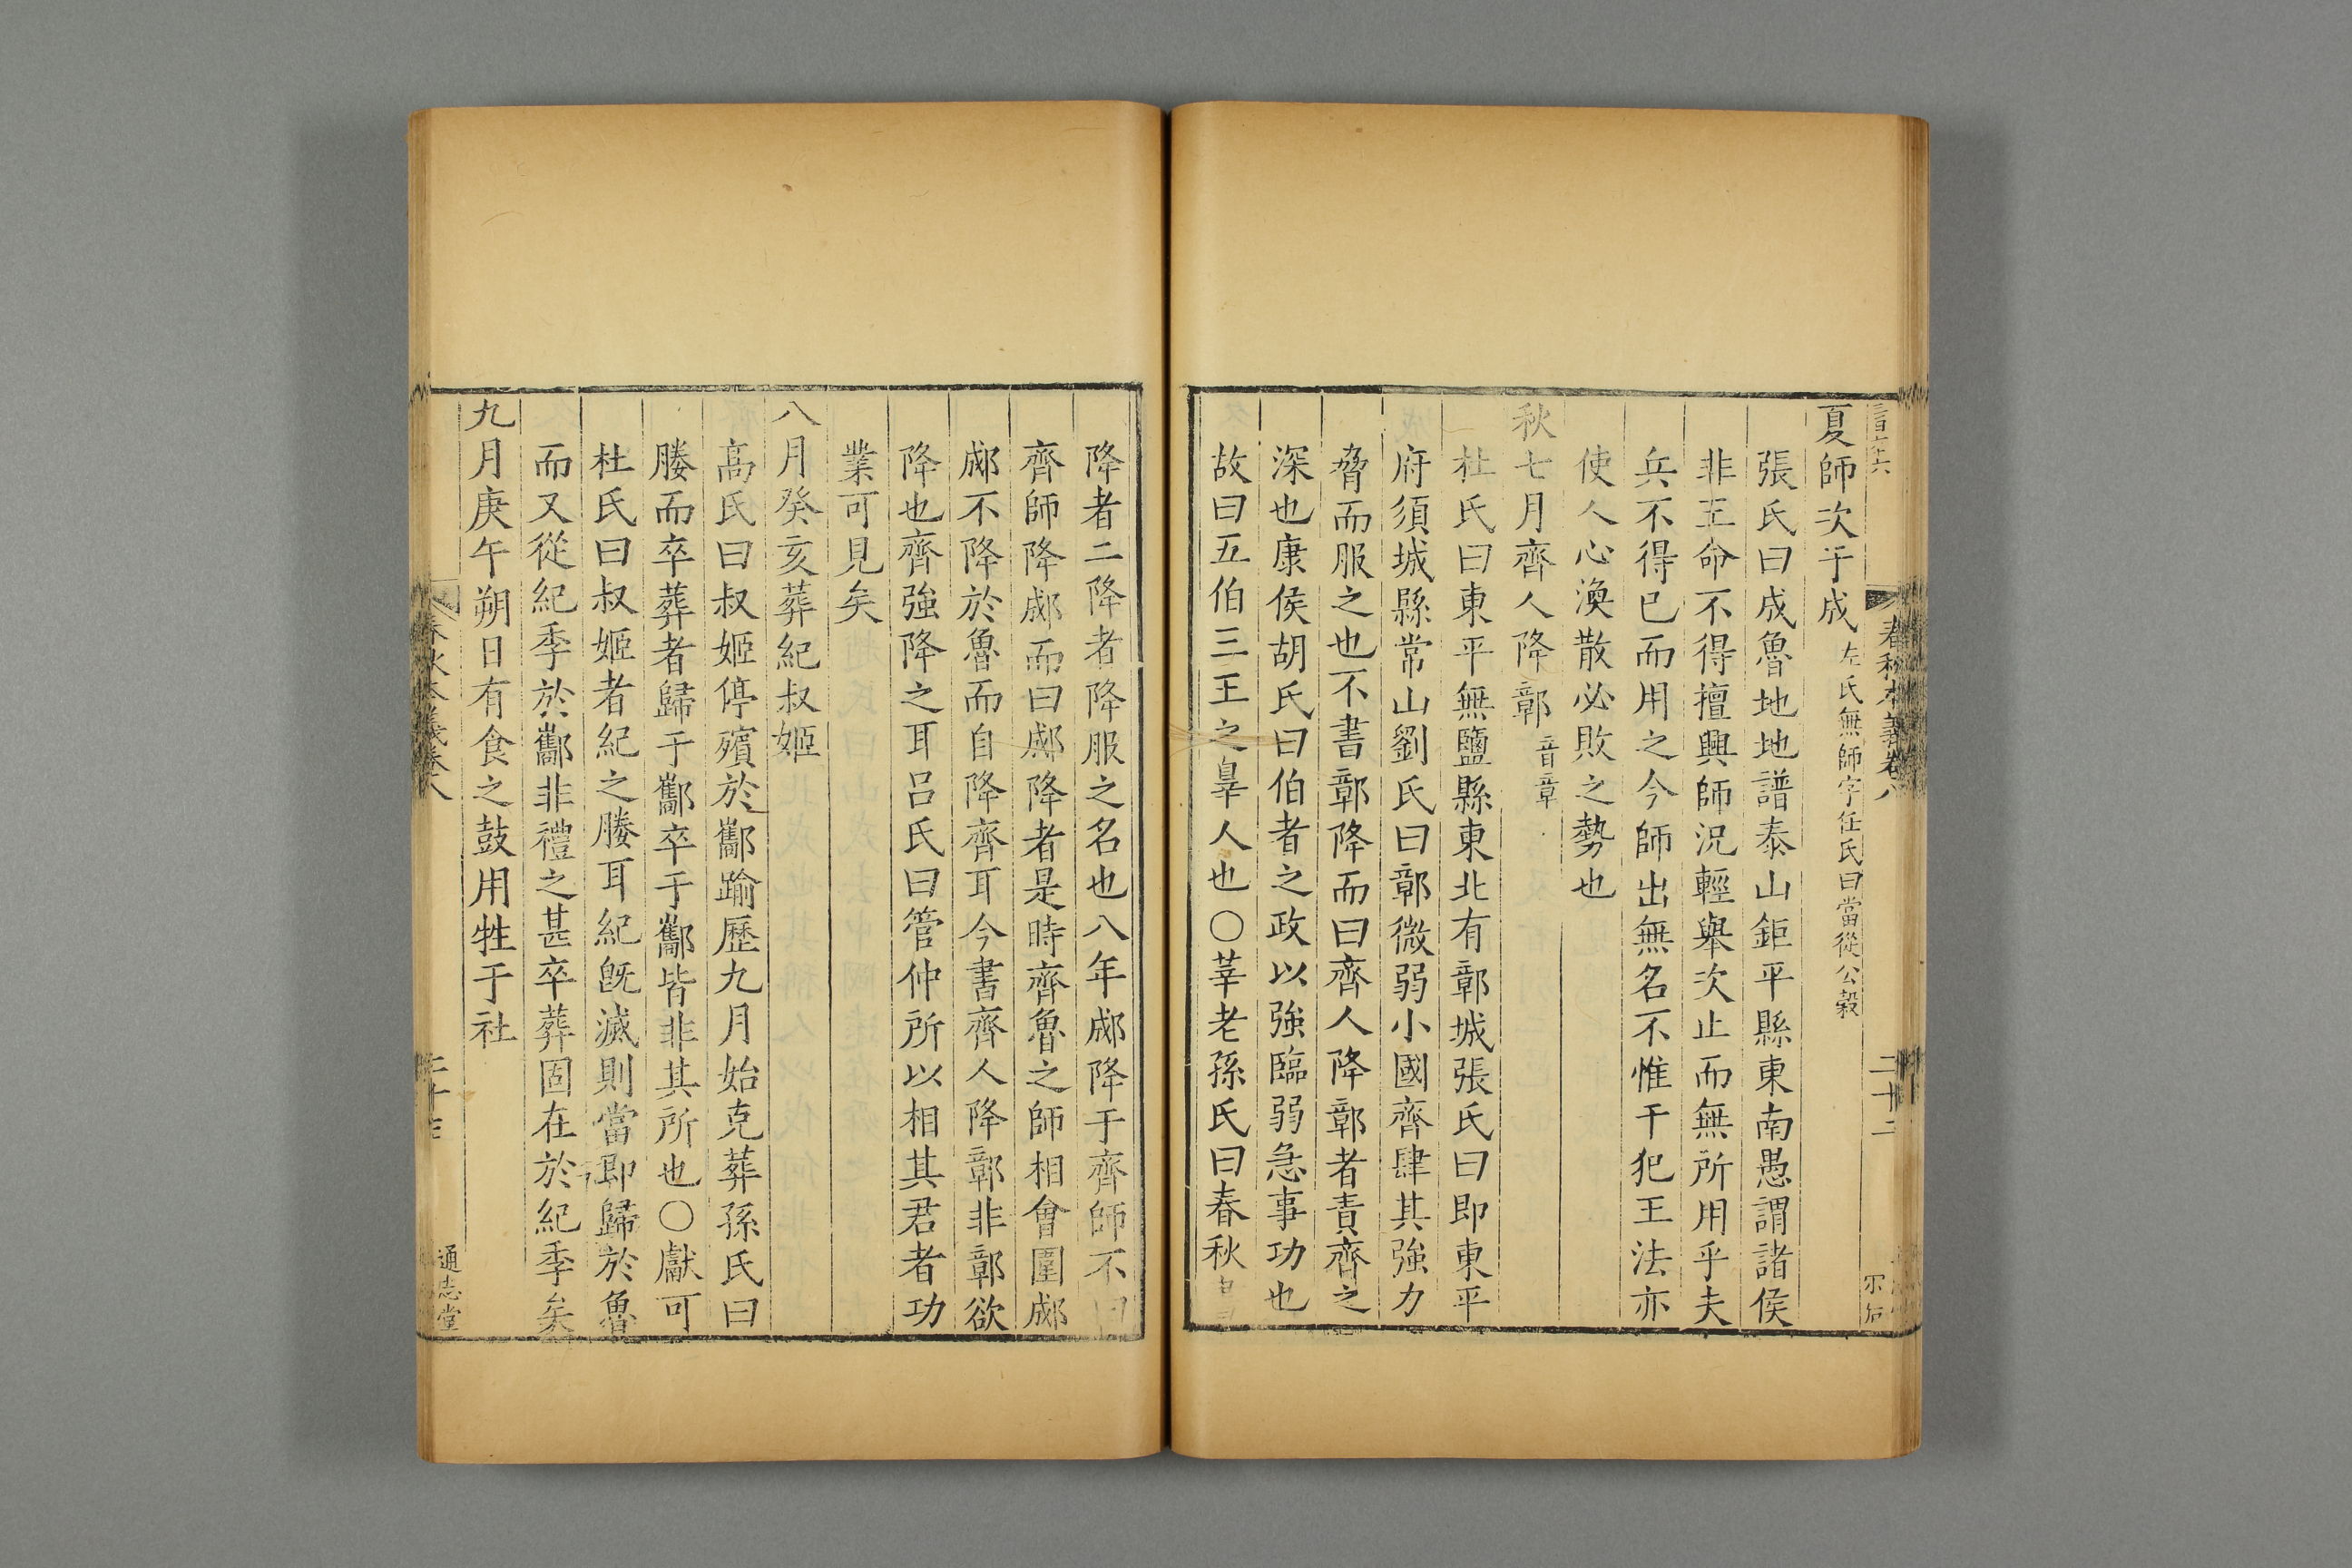 春秋本義卷八
二十二
夏師次于成左氏無師字任氏曰當從公穀
張氏曰成魯地地譜泰山鉅平縣東南愚謂諸侯
非王命不得擅興師況輕舉次止而無所用乎夫
兵不得已而用之今師出無名不惟干犯王法亦
使人心渙散必敗之勢也
秋七月齊人降鄣音章
杜氏曰東平無鹽縣東北有鄣城張氏曰即東平
府須城縣常山劉氏曰鄣微弱小國齊肆其強力
脅而服之也不書鄣降而曰齊人降鄣者責齊之
深也康侯胡氏曰伯者之政以強臨弱急事功也
故曰五伯三王之辠人也○莘老孫氏曰春秋
降者二降者降服之名也八年郕降于齊師不曰
齊師降郕而曰郕降者是時齊魯之師相會圍郕
郕不降於魯而自降齊耳今書齊人降鄣非鄣欲
降也齊強降之耳呂氏曰管仲所以相其君者功
業可見矣
八月癸亥葬紀叔姬
高氏曰叔姬停殯於酅踰歷九月始克葬孫氏曰
媵而卒葬者歸于酅卒于酅皆非其所也○獻可
杜氏曰叔姬者紀之媵耳紀旣滅則當即歸於魯
而又從紀季於酅非禮之甚卒葬固在於紀季矣
九月庚午朔日有食之鼓用牲于社
春秋本義卷八
通志堂